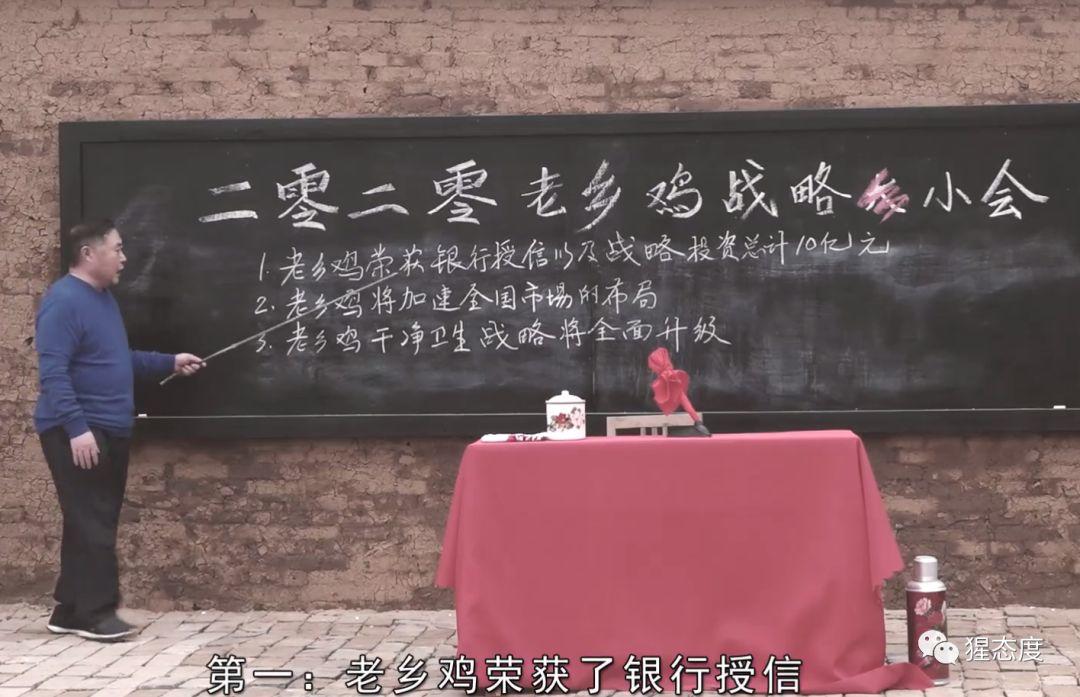 二零二零老乡鸡战略小会
1. 老乡鸡荣获银行授信以及战略投资总计10亿元
2. 老乡鸡将加速全国市场的布局
3. 老乡鸡干净卫生战略将全面升级
第一：老乡鸡荣获了银行授信
猩态度